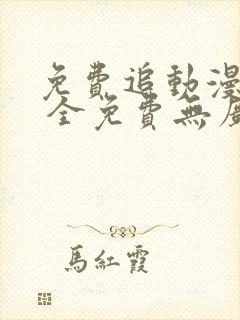 免費追動漫
全免費無
馬紅霞